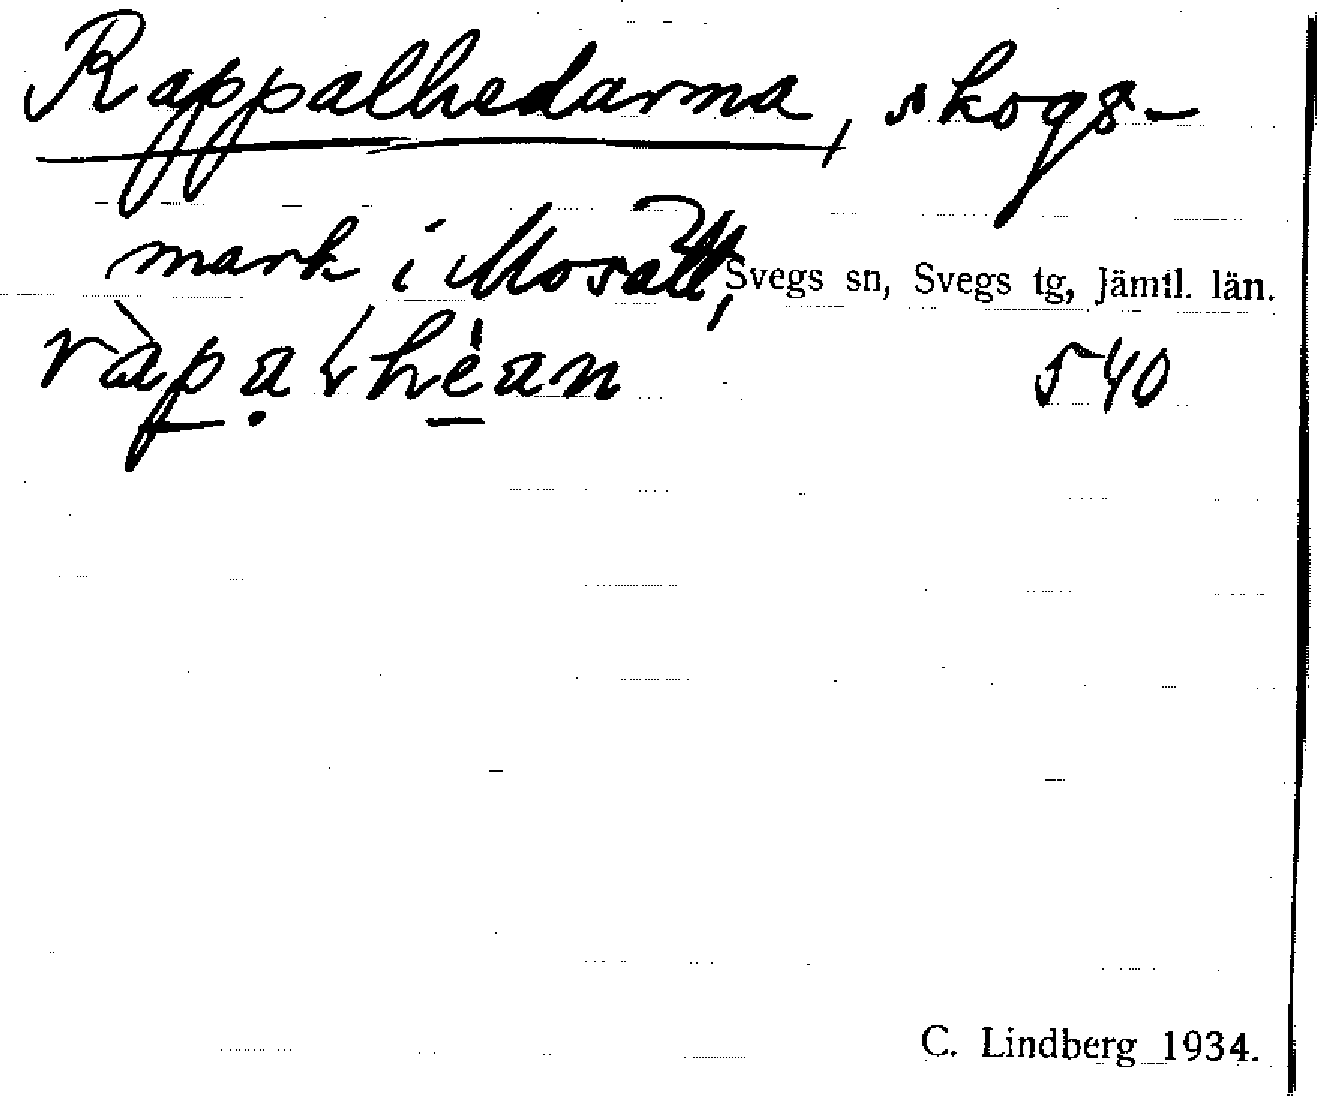 Rappalhedarna, skogs-
mark i Moratt, Svegs sn, Svegs tg, Jämtl. län.
540
C. Lindberg 1934.